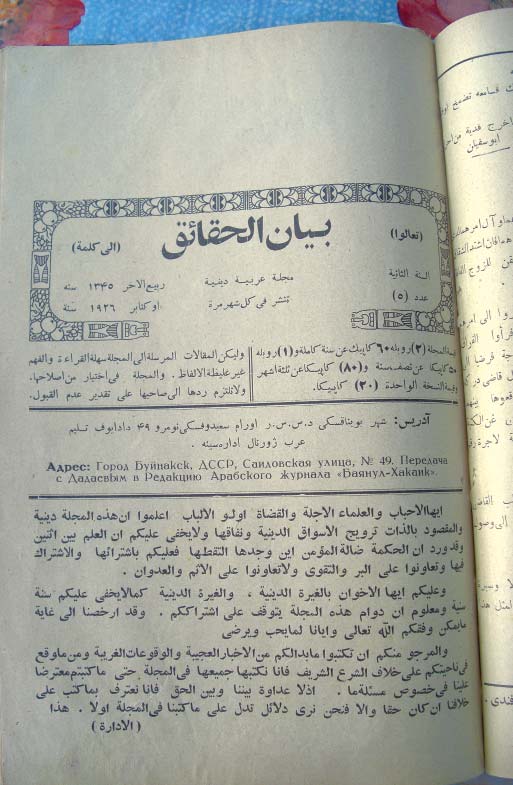 بيان الحقائق
(تعالوا)
(الى كلمة)
السنة الثانية
مجلة عربية دينية
ربيع الاخر ١٣٤٥ سنه
عدد (٥)
تنشر فى كل شهر مرة
اوكتابر ١٩٢٦ سنة
قيمة المجلة (٢) روبله ٦٠ كاپيك عن سنة كاملة و (١) روبله
٥٠ كاپيكا عن نصف سنة و (٨٠) كاپيكا عن ثلثة اشهر
وقيمة النسخة الواحدة (٣٠) كاپيكا.
وليكن المقالات المرسلة الى المجلة سهلة القراءة والفهم
غير غليظة الالفاظ. والمجلة فى اختيار من اصلاحها،
ولاتلتزم ردها الى صاحبها على تقدير عدم القبول.
آدريس: شهر بويناقسكى د.س.س.ر اورام سعيدوفسكى نومرو ٤٩ دادايوف تسليم
عرب ژورنال اداره سينه.
Адрес: Город Буйнакск, ДССР, Саидовская улица, № 49. Передача
с Дадаевым в Редакцию Арабского журнала «Баянул-Хакаик».
ايها الاحباب والعلماء الاجلة والقضاة اولو الالباب اعلموا ان هذه المجلة دينية
والمقصود بالذات ترويج الاسواق الدينية ونفاقها ولايخفى عليكم ان العلم بين اثنين
وقد ورد ان الحكمة ضالة المؤمن اين وجدها التقطها فعليكم باشترائها والاشتراك
فيها وتعاونوا على البر والتقوى ولاتعاونوا على الاثم والعدوان.
وعليكم ايها الاخوان بالغيرة الدينية، والغيرة الدينية كمالايخفى عليكم سنة
سنية ومعلوم ان دوام هذه المجلة يتوقف على اشتراككم. وقد ارخصنا الى غاية
مايمكن وفقكم الله تعالى وايانا لمايحب ويرضى
والمرجو منكم ان تكتبوا مابدالكم من الاخبار العجيبة والوقوعات الغريبة ومن ماوقع
فى ناحيتكم على خلاف الشرع الشريف فانا نكتبها جميعها فى المجلة حتى ماكتبتم معترضا
علينا فى خصوص مسئلة ما. اذلا عداوة بيننا وبين الحق فانا نعترف بماكتب على
خلافنا ان كان حقا والا فنحن نرى دلائل تدل على ماكتبنا فى المجلة اولا. هذا
(الادارة)